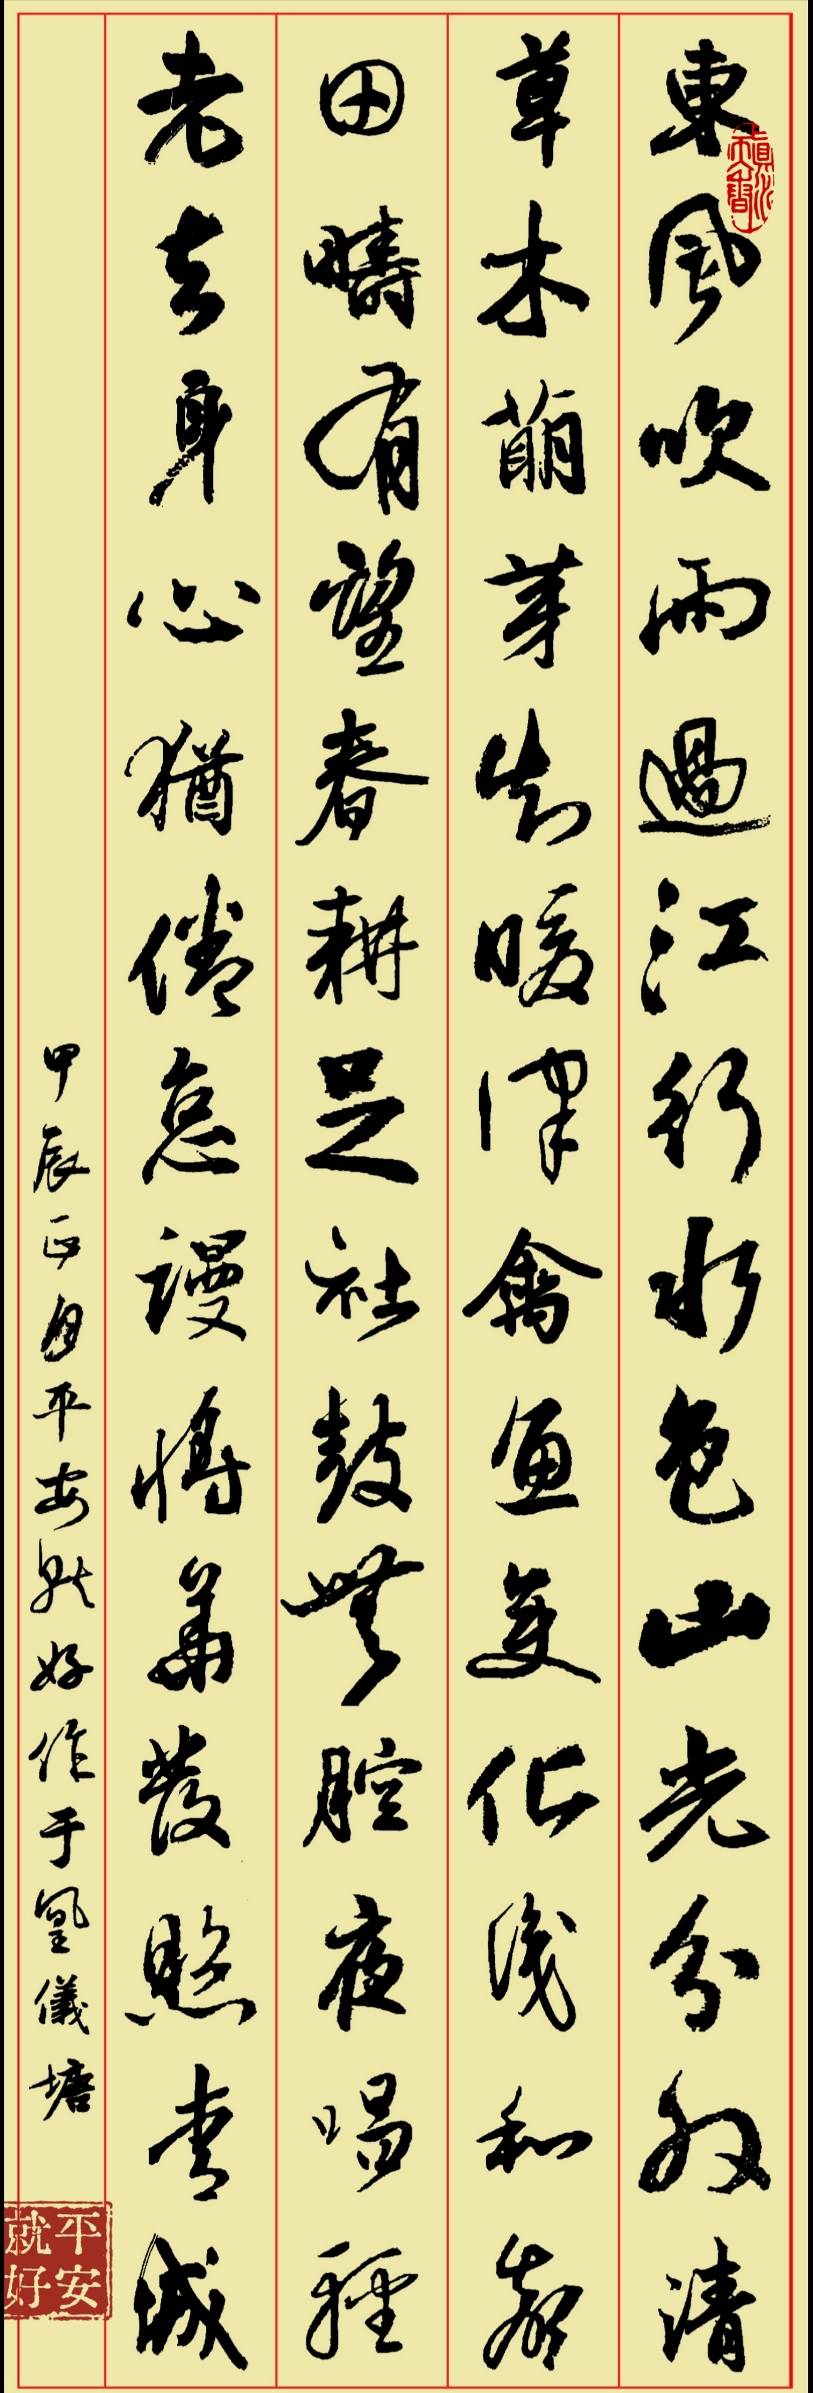 東風吹雨過江行水色山光分外清
草木萌芽知暖律禽魚變化識和聲
田疇有望春耕足社鼓無腔夜唱輕
老去身心猶倦怠謾將華發照青城
甲辰正月平安就好作于凰儀塘
平安就好